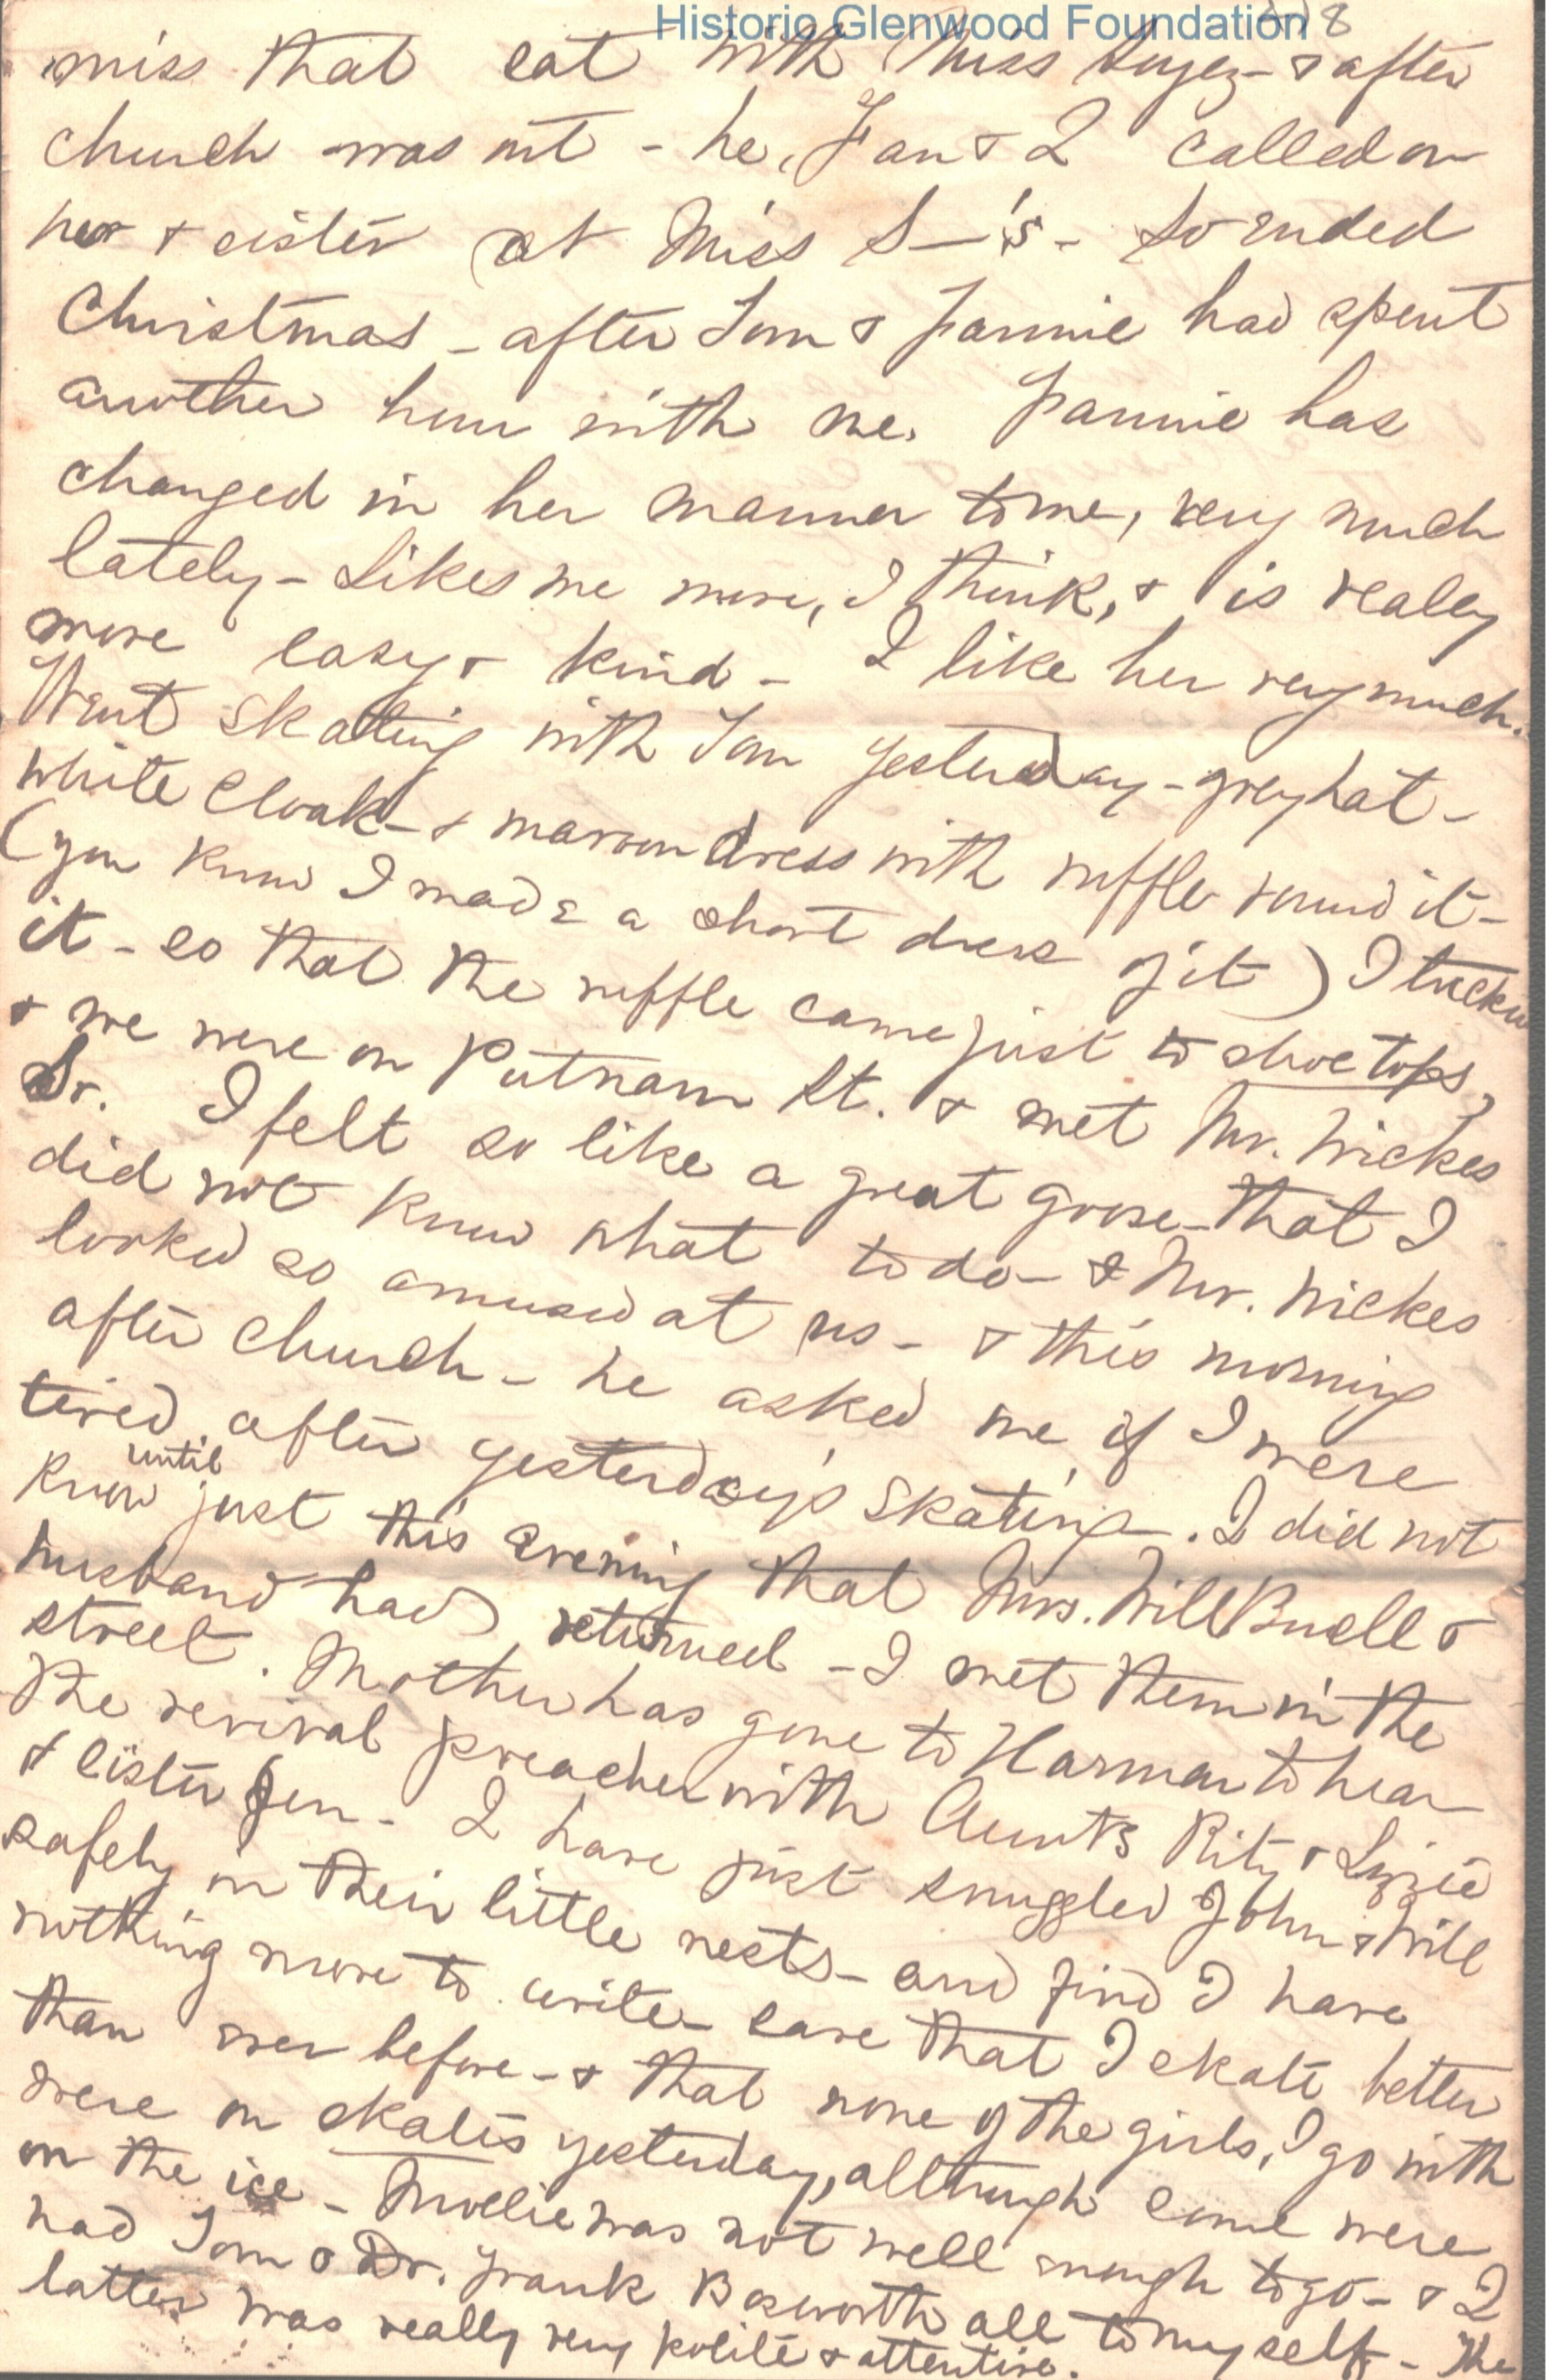 Historic Glenwood Foundation
miss that sat with Miss & after
church was out - he, Fan & I called on
her & sister at Miss S—'s - So ended
Christmas - after Tom & Fannie had spent
another hour with me. Fannie has
changed in her manner to me, very much
lately - Likes me more, I think, & is really
more easy & kind - I like her very much.
Went skating with Tom yesterday - grey hat -
white cloak - & maroon dress with ruffle round it -
(you know I made a short dress of it) I tucked
it - so that the ruffle came just to shoe tops,
& we were on Putnam St. & met Mr. Nickes
Sr. I felt so like a great goose - that I
did not know what to do - & Mr. Nickes
looked so amused at us - & this morning
after church - he asked me if I were
tired after yesterday's skating. I did not
know until just this evening that Mrs. Will Buell &
husband had returned - I met them in the
street. Mother has gone to Harmar to hear
the revival preacher with Aunts Rity & Lizzie
& sister Jen - I have just snuggled John & Will
safely in their little nests - and find I have
nothing more to write - save that I skate better
than ever before - & that none of the girls, I go with
were on skates yesterday, although some were
on the ice - Mollie was not well enough to go - & I
had Tom & Dr. Frank Bosworth all to myself - The
latter was really very polite & attentive.